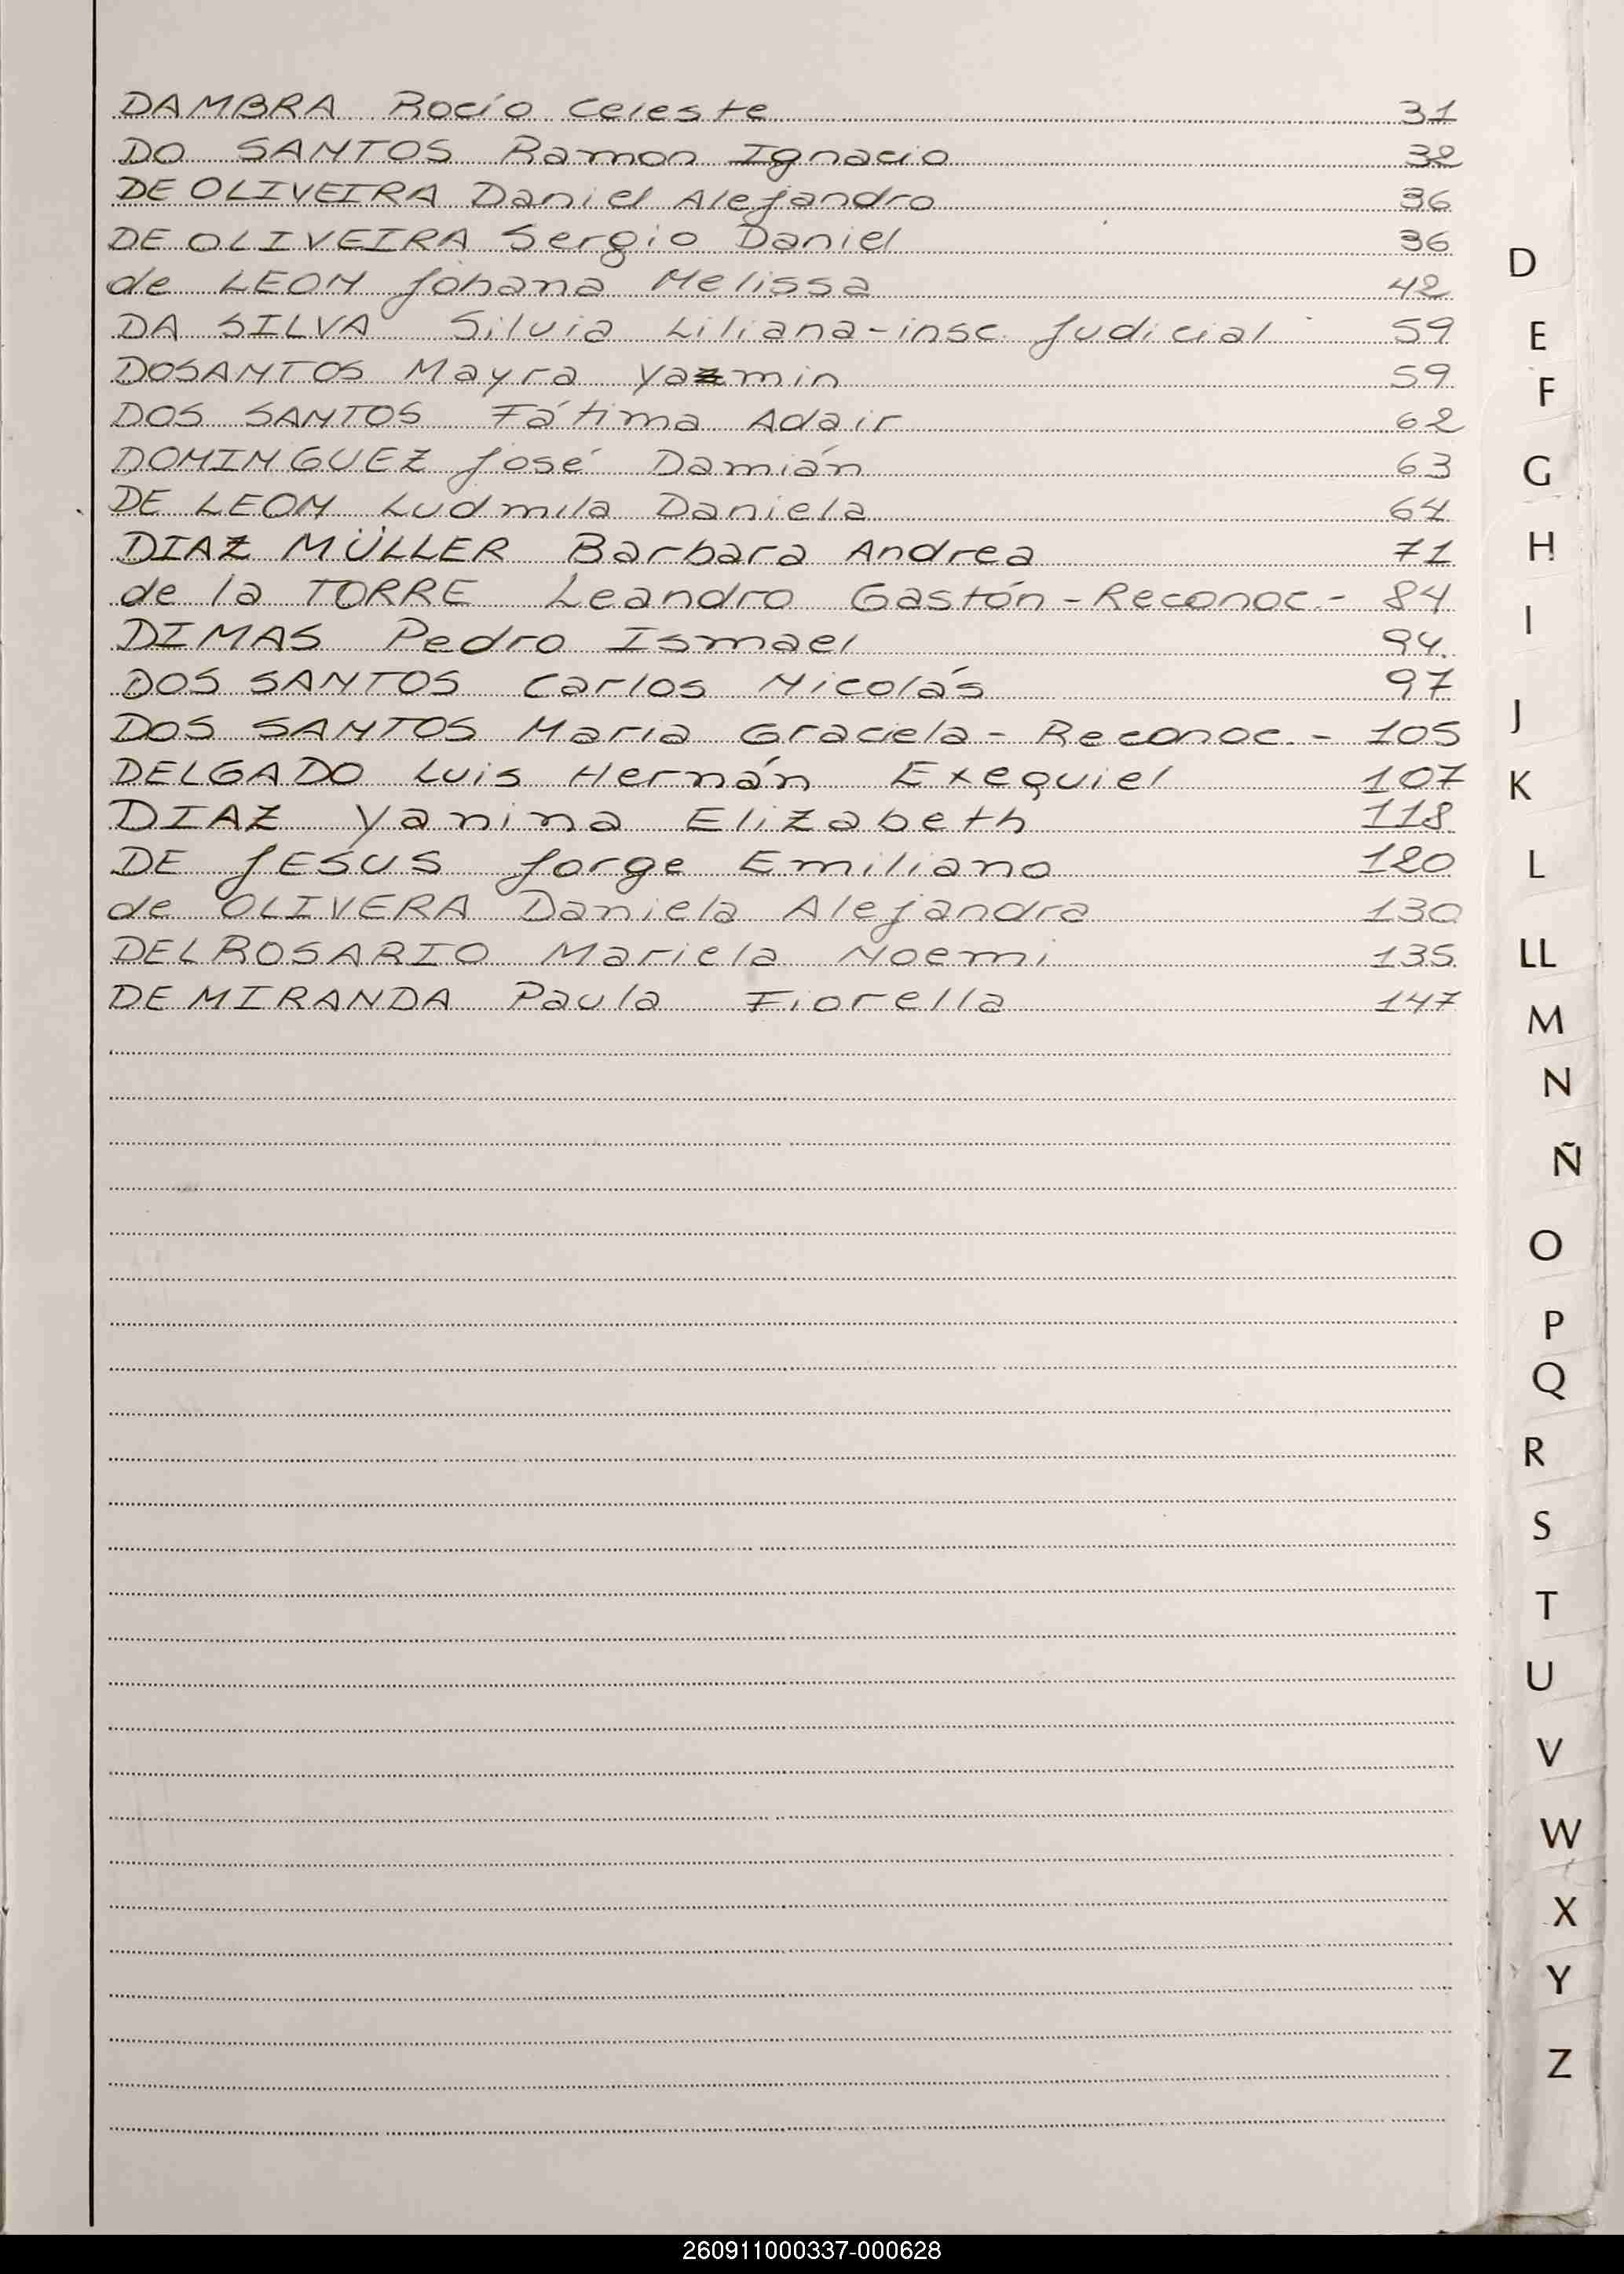 DAMBRA Rocío Celeste 31
DO SANTOS Ramon Ignacio 32
DE OLIVEIRA Daniel Alejandro 36
DE OLIVEIRA Sergio Daniel 36
de LEON Johana Melissa 42
DA SILVA Silvia Liliana-insc. Judicial 59
DOSANTOS Mayra Yazmin 59
DOS SANTOS Fátima Adair 62
DOMINGUEZ José Damián 63
DE LEON Ludmila Daniela 64
DIAZ MÜLLER Barbara Andrea 71
de la TORRE Leandro Gastón-Reconoc.- 84
DIMAS Pedro Ismael 94.
DOS SANTOS Carlos Nicolás 97
DOS SANTOS Maria Graciela-Reconoc.- 105
DELGADO Luis Hernán Exequiel 107
DIAZ Yanina Elizabeth 118
DE JESÚS Jorge Emiliano 120
de OLIVERA Daniela Alejandra 130
DEL ROSARIO Mariela Noemi 135
DE MIRANDA Paula Fiorella 147
D
E
F
G
H
I
J
K
L
LL
M
N
Ñ
O
P
Q
R
S
T
U
V
W
X
Y
Z
260911000337-000628